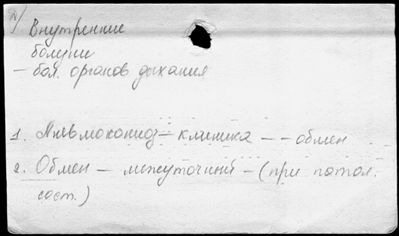 N/ Внутренние
болезни
— бол. органов дыхания
1. Пневмокониоз — клиника — — обмен
2. Обмен — межуточный — (при патол.
сост.)